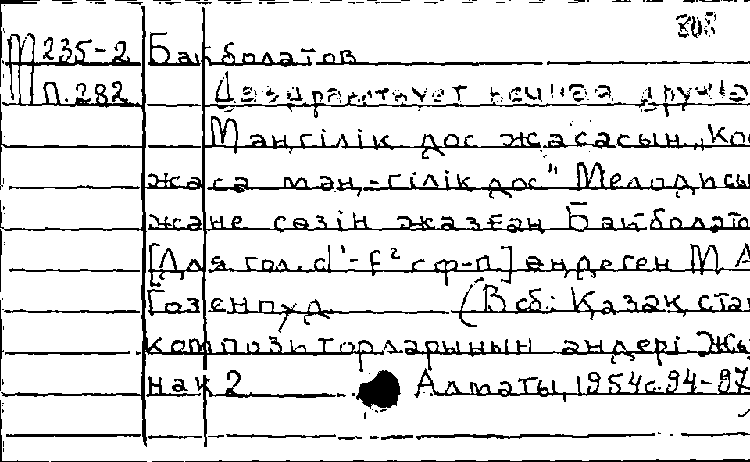 808
М 235-2 Байболатов
п.282 Да здравствует великая дружба
Мәңгілік дос жасасын „Көп
жаса мәң-гілік дос" Мелодиясы
және сөзін жазған Байболатов
[Для гол. d¹-f² с ф-п.] өңдеген М. А.
Гозенпуд (В сб: Қазақстан
композиторларының әндері Жы
нақ 2 Алматы, 1954 с. 94-97